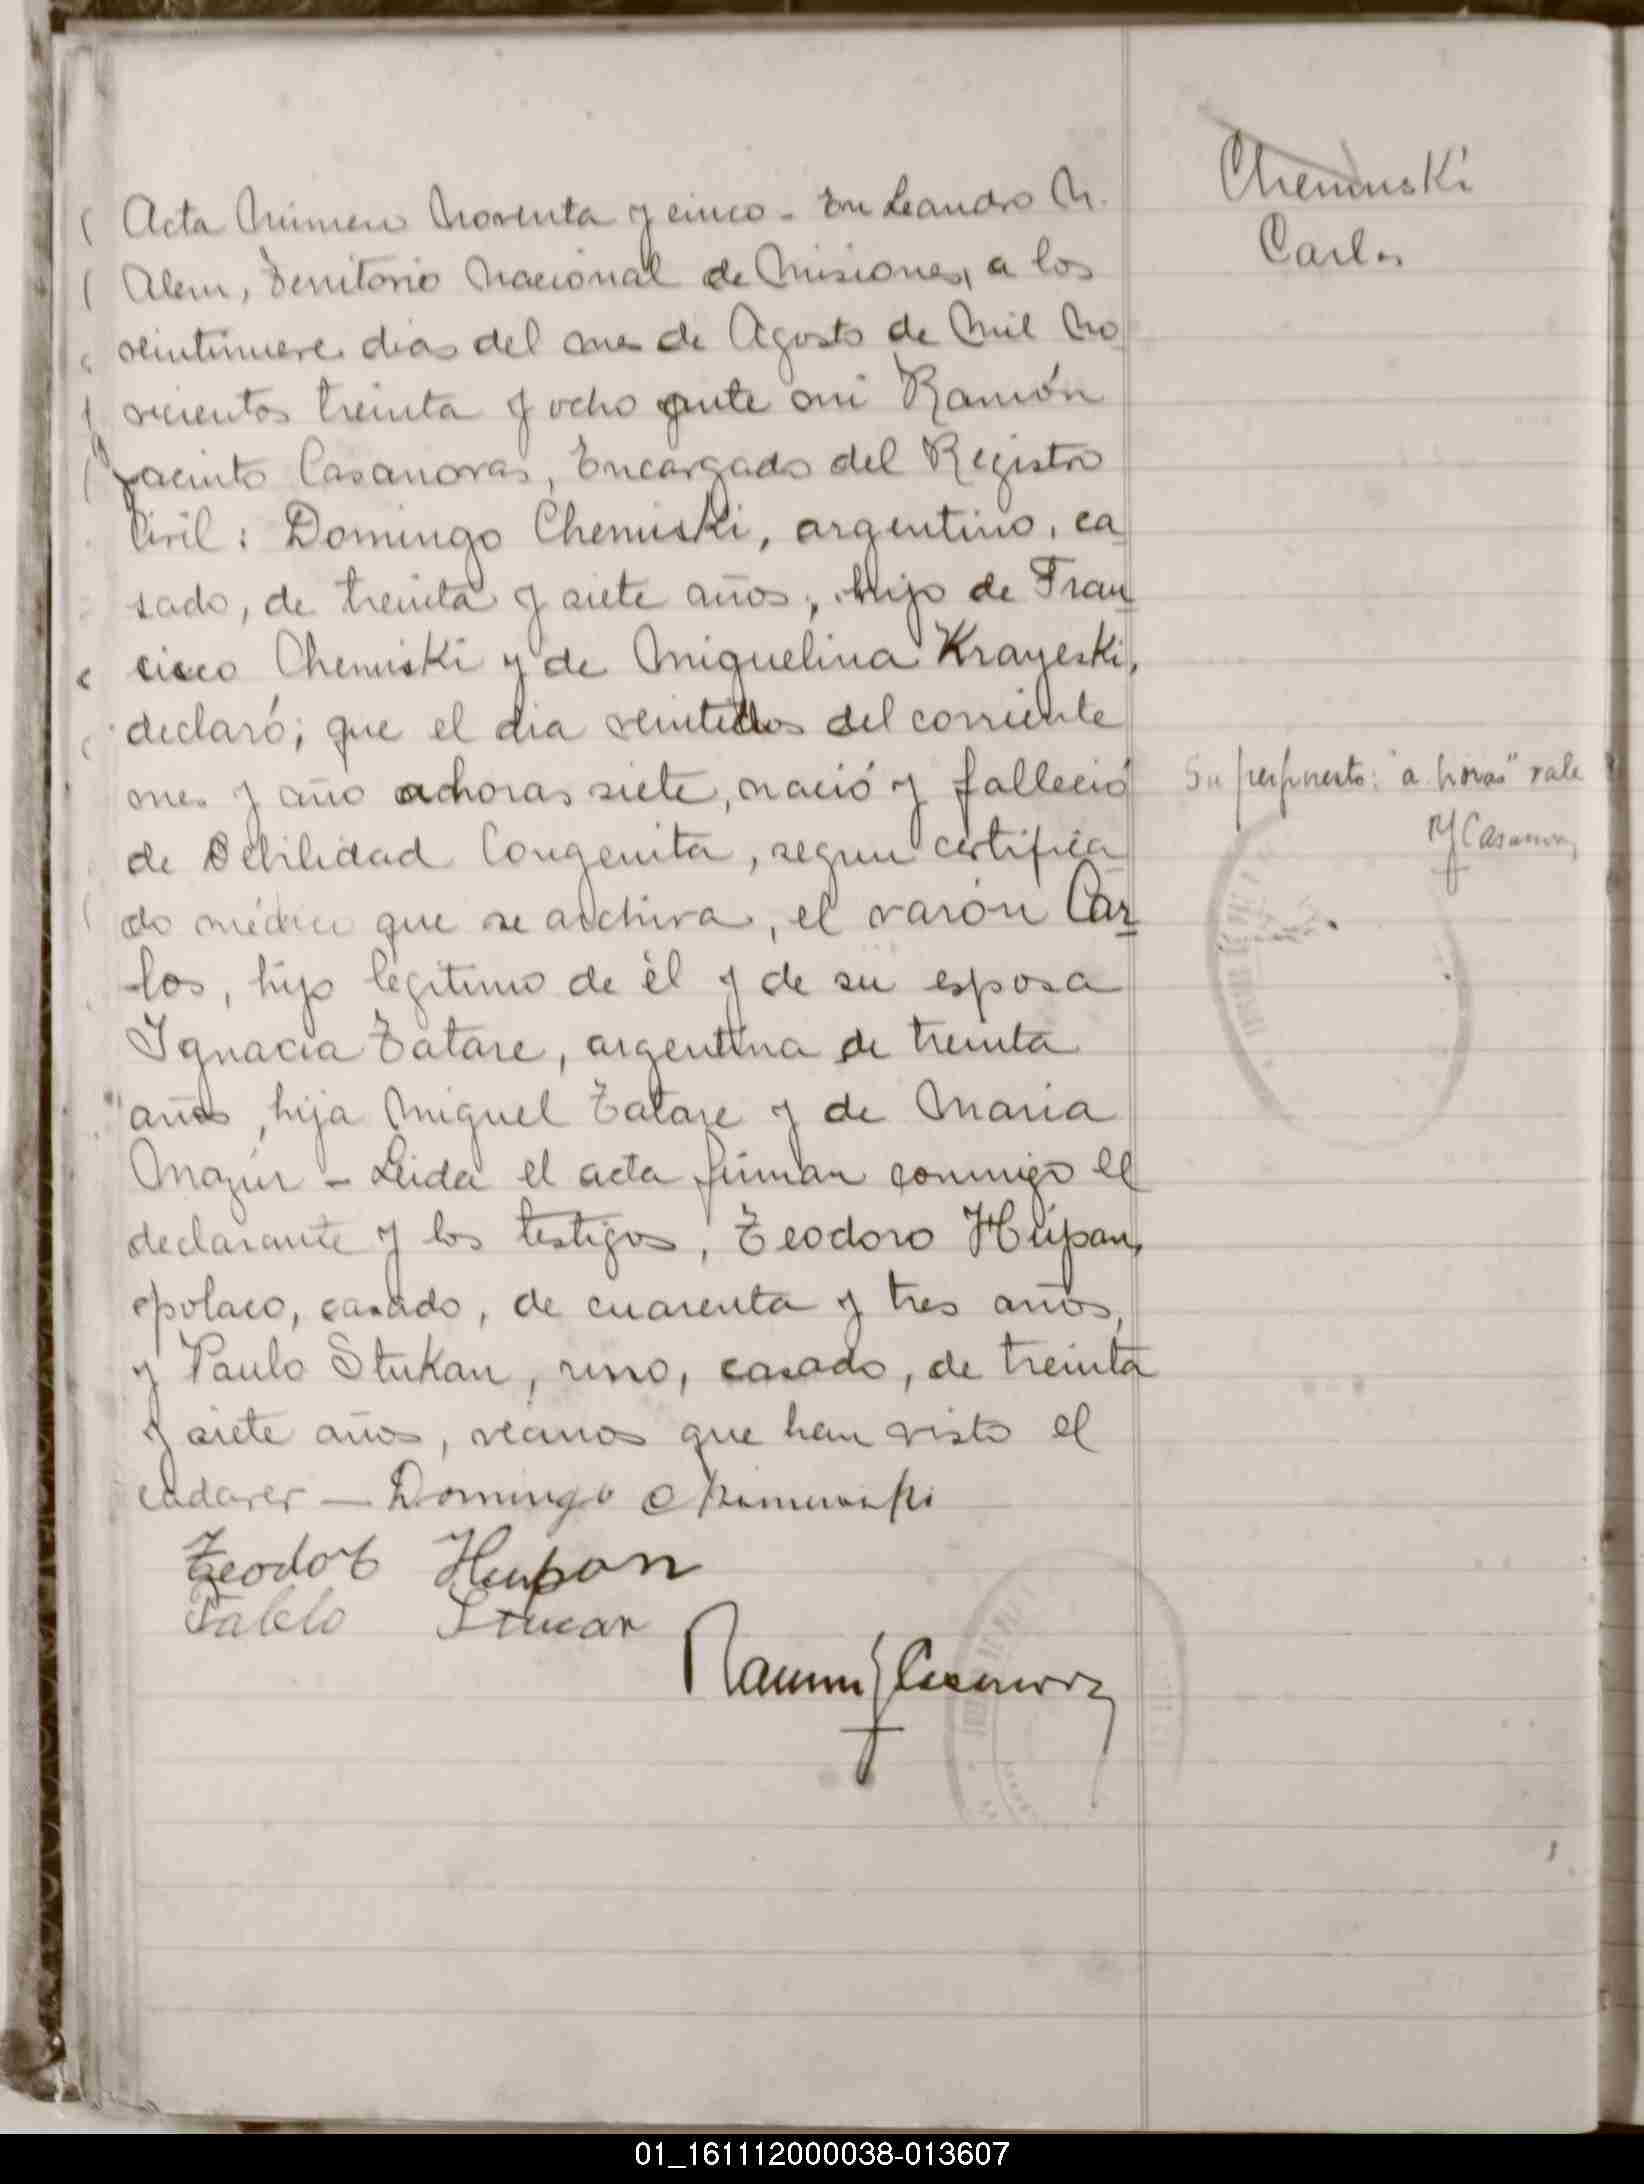 Chemiski
Carlos
Acta Número Noventa y cinco - En Leandro N.
Alem, Territorio Nacional de Misiones, a los
veintinueve dias del mes de Agosto de Mil No
vecientos treinta y ocho ante mi Ramón
Jacinto Casanovas, Encargado del Registro
Civil: Domingo Chemiski, argentino, ca
sado, de treinta y siete años, hijo de Fran
cisco Chemiski y de Miguelina Krayeski,
declaró; que el dia veintidos del corriente
mes y año a horas siete, nació y falleció
de Debilidad Congenita, segun certifica
do médico que se archiva, el varón Car
los, hijo legítimo de él y de su esposa
Ignacia Tatare, argentina de treinta
años, hija Miguel Tatare y de Maria
Mazur - Leida el acta firman conmigo el
declarante y los testigos, Teodoro Hupan,
polaco, casado, de cuarenta y tres años,
y Paulo Stukan, ruso, casado, de treinta
y siete años, vecinos que han visto el
cadaver — Domingo
Teodor Hupan
Pablo Stucar
Ramón J Casanovas
Superpuesto: "a horas" vale
RJ Casanovas
01_161112000038-013607